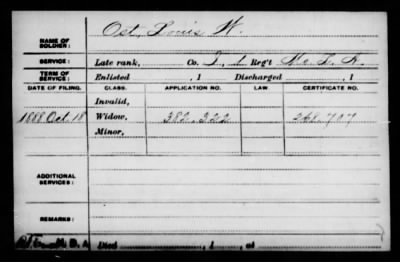 NAME OF SOLDIER: Ost, Louis W.
SERVICE: Late rank, Co. I, 1 Reg't Mo. L. A.
TERM OF SERVICE: Enlisted , 1 Discharged , 1
DATE OF FILING. CLASS. APPLICATION NO. LAW. CERTIFICATE NO.
Invalid,
1888 Oct. 18 Widow, 382.322 268.707
Minor,
ADDITIONAL SERVICES:
REMARKS:
Died , 1 , at